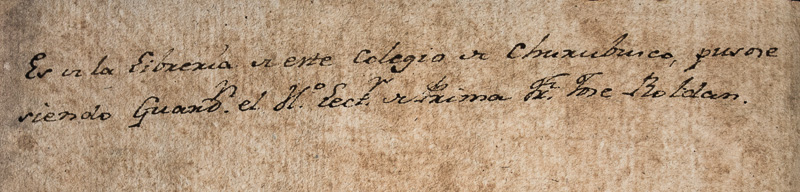 Es de la Libreria de este Colegio de Churubusco, pusose
siendo Guardⁿ. el H.º Lectʳ de Prima Fr. Jose Roldan.